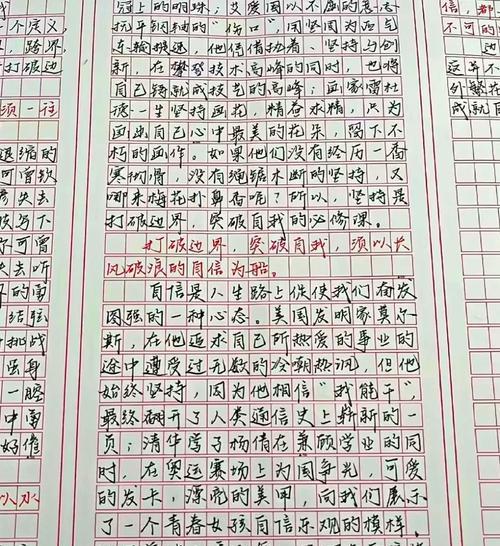 个定义
路界
打破边
须一往
退缩的
何曾软
彦失去
续写下
尔可曾
失去听
的雪
结弦
挑战
强身
一腔
中雪
好催
冠上的明珠；艾爱国以不屈的意志
抗平钢轴的“伤口”，因坚固为西气
东输投运，他凭借执着、坚持与创
新，在攀登技术高峰的同时，也将
自己铸就成技艺的高峰；画家雷杜
德一生坚持画花，精益求精，只为
画出自己心中最美的花朵，留下不
朽的画作。如果他们没有经历一番
寒彻骨，没有绳锯木断的坚持，又
哪来梅花扑鼻香呢？所以，坚持是
打破边界，突破自我的必修课。
打破边界，突破自我，须以长
风破浪的自信为船。
自信是人生路上促使我们奋发
图强的一种心态。美国发明家莫尔
斯，在他追求自己所热爱的事业的
途中遭受过无数的冷嘲热讽，但他
始终坚持，因为他相信“我能干”，
最终翻开了人类通信史上崭新的一
页；清华学子杨倩在兼顾学业的同
时，在奥运赛场上为国争光，可爱
的发卡，漂亮的美甲，向我们展示
了一个青春女孩自信乐观的模样。
信，都
不可的
成就